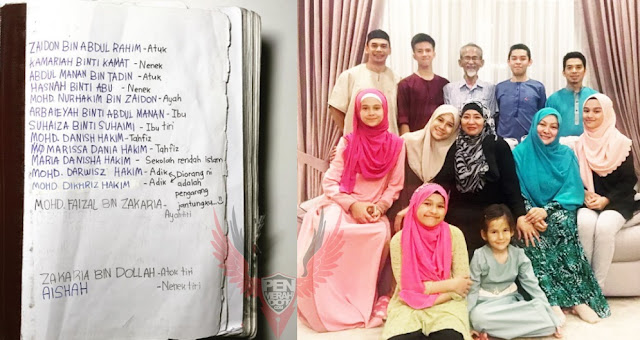 ZAIDON BIN ABDUL RAHIM - Atuk
KAMARIAH BINTI KAMAT - Nenek
ABDUL MANAN BIN TADIN - Atuk
HASNAH BINTI ABU - Nenek
MOHD. NURHAKIM BIN ZAIDON - Ayah
ARBAIEYAH BINTI ABDUL MANAN - Ibu
SUHAIZA BINTI SUHAIMI - Ibu tiri
MOHD. DANISH HAKIM - Tahfiz
MARISSA DANIA HAKIM - Tahfiz
MARIA DANISHA HAKIM - Sekolah rendah Islam
MOHD. DARWISZ HAKIM - Adik
MOHD DIKHRIZ HAKIM - Adik
Diorang ni
adalah
pengarang
jantungku
MOHD. FAIZAL BIN ZAKARIA -
Ayah tiri
ZAKARIA BIN DOLLAH - Atok tiri
AISHAH - Nenek tiri
PEN
MERAH